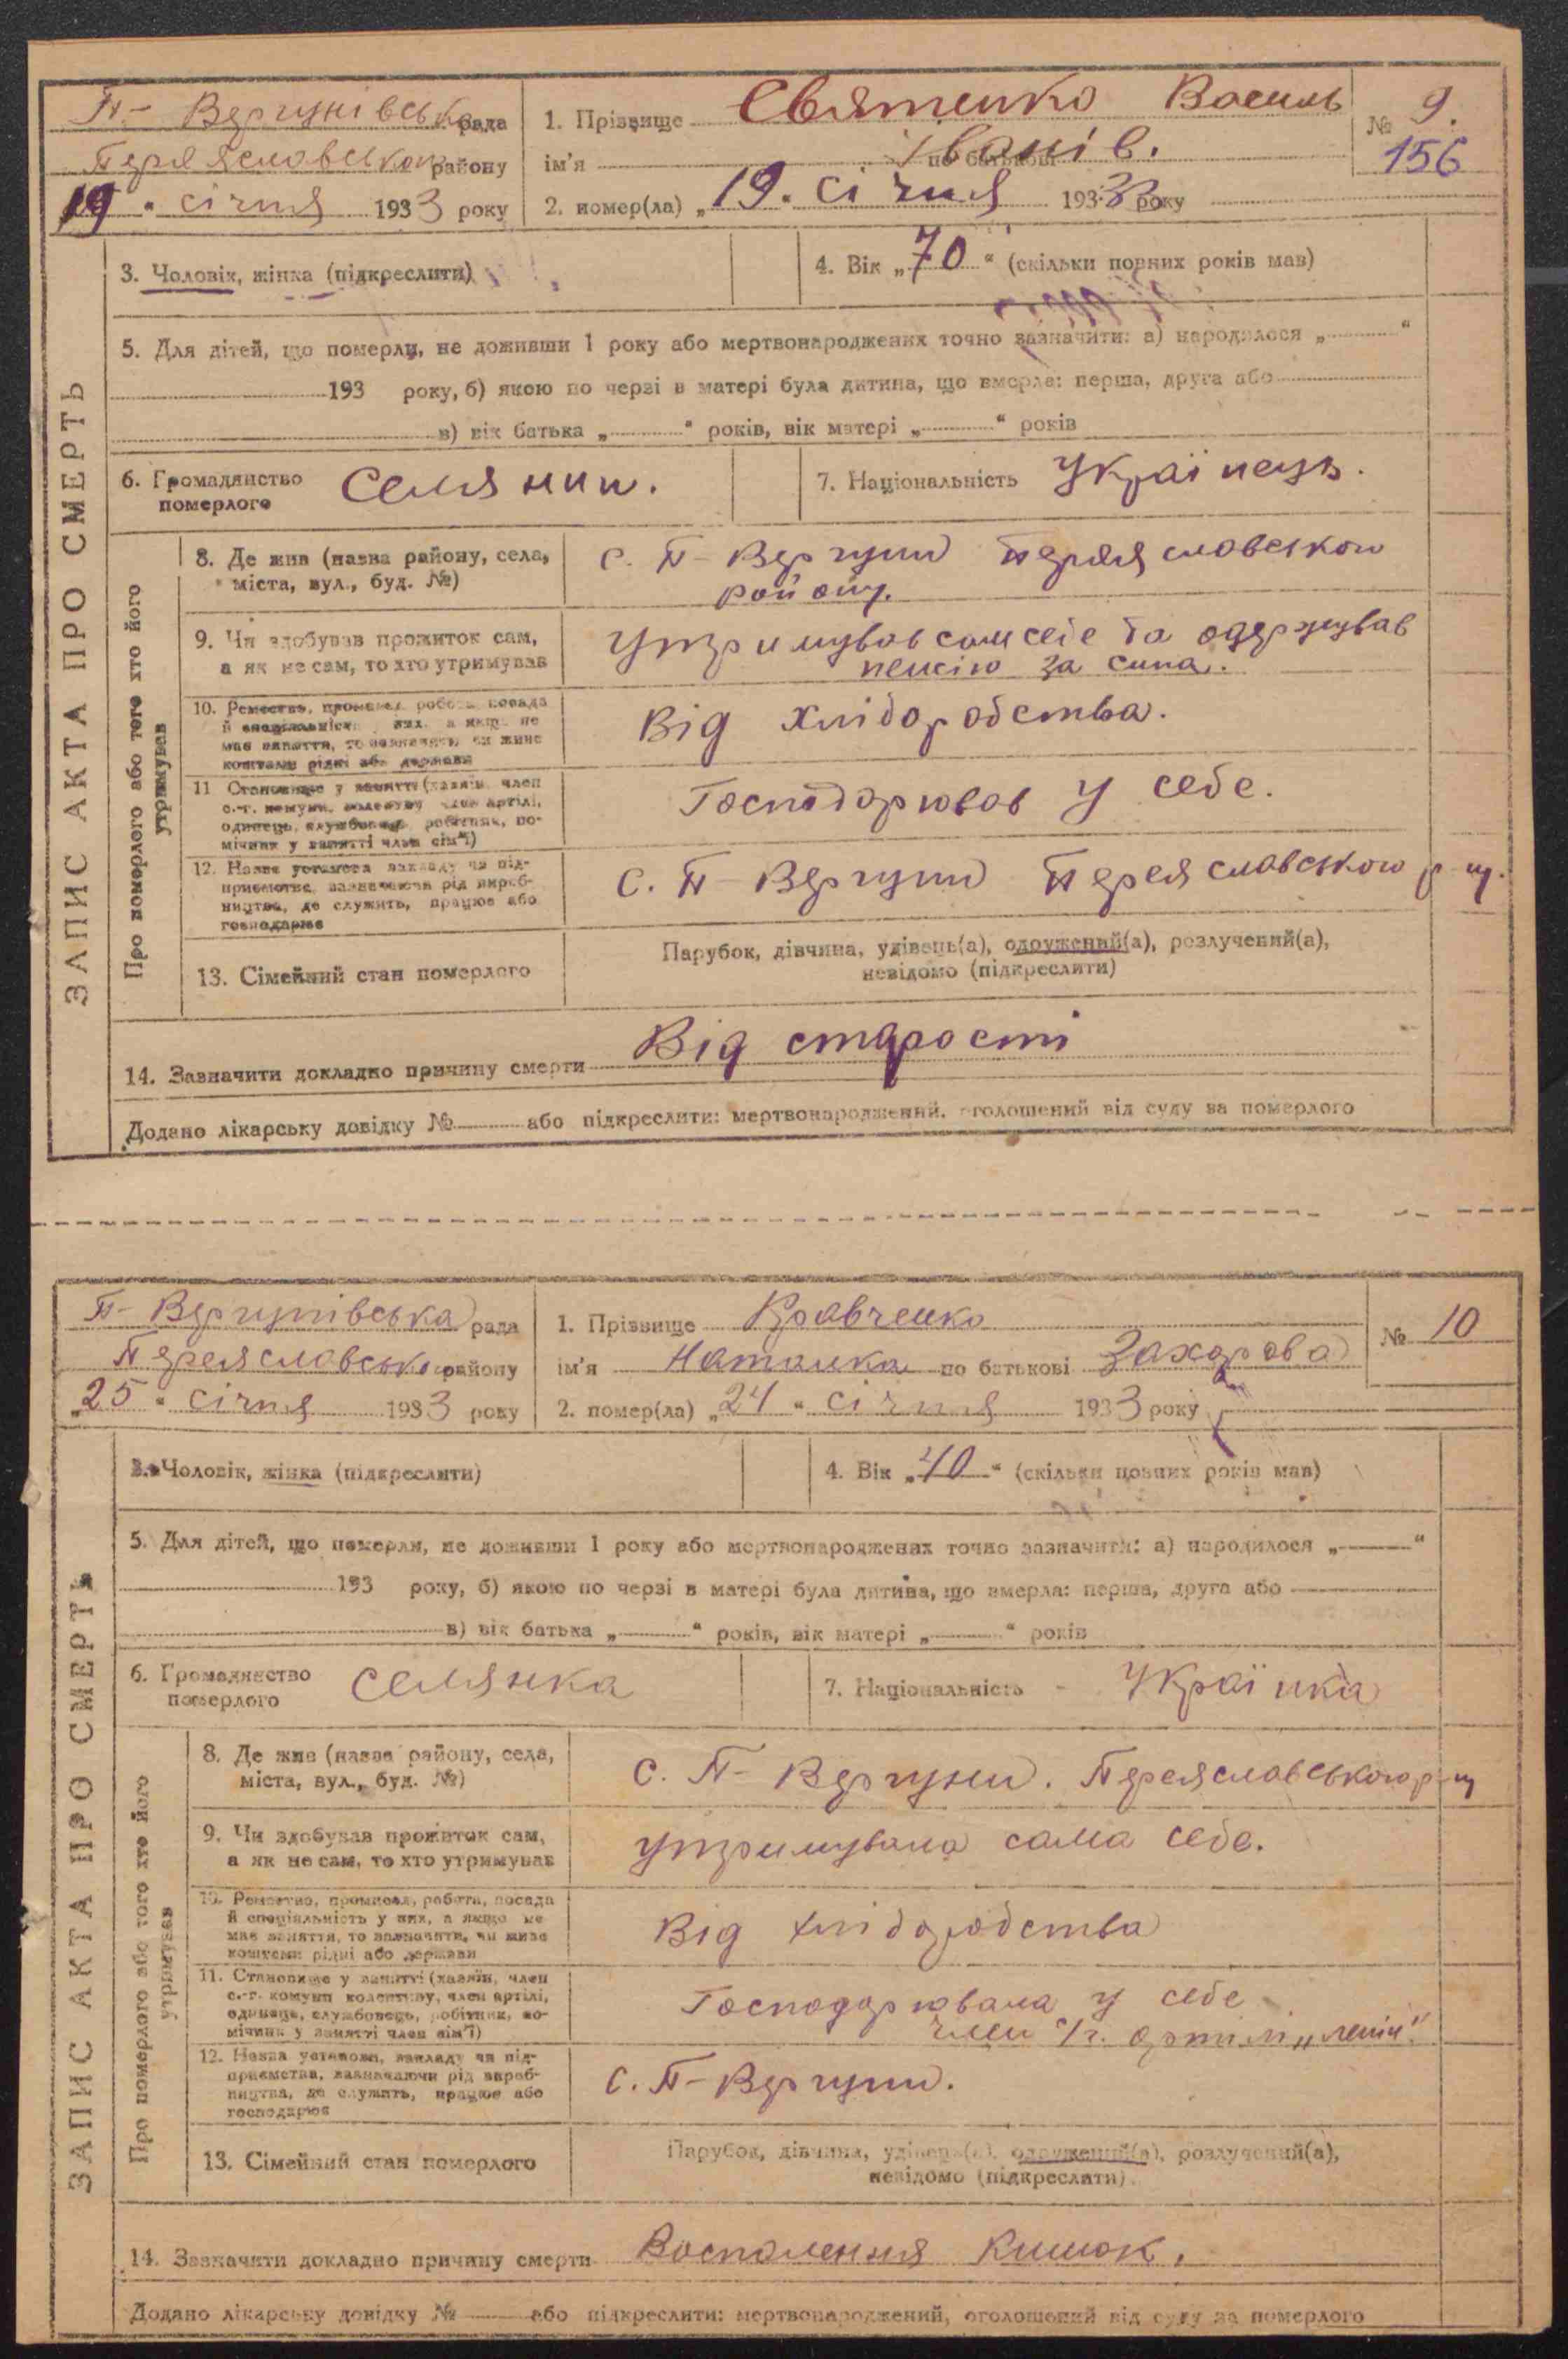 П- Вергунівська рада
Переяславського району
19 " січня 1933 року
1. Прізвище Святенко Василь
ім'я по батькові Іванів.
2. помер(ла) „ 19 " січня 1933 року
№ 9.
156
ЗАПИС АКТА ПРО СМЕРТЬ
3. Чоловік, жінка (підкреслити)
4. Вік „ 70 " (скільки повних років мав)
5. Для дітей, що померли, не доживши 1 року або мертвонароджених точно зазначити: а) народилося „ "
193 року, б) якою по черзі в матері була дитина, що вмерла: перша, друга або
в) вік батька „ " років, вік матері „ " років
6. Громадянство померлого Селянин.
7. Національність Українець.
Про померлого або того хто його утримував
8. Де жив (назва району, села, міста, вул., буд. №)
с. П- Вергуни Переяславського
району.
9. Чи здобував прожиток сам, а як не сам, то хто утримував
утримував сам себе та одержував
пенсію за сина.
10. Ремество, промисел, робота, посада й спеціальність у них, а якщо не має заняття, то зазначити, чи живе коштами рідні або держави
Від хліборобства.
11 Становище у занятті (хазяїн, член с.-г. комуни, колективу, член артілі, одинець, службовець, робітник, помічник у занятті член сім'ї)
Господарював у себе.
12. Назва установи, закладу чи підприємства, зазначаючи рід виробництва, де служить, працює або господарює
с. П- Вергуни Переяславського р-ну.
13. Сімейний стан померлого
Парубок, дівчина, удівець(а), одружений(а), розлучений(а),
невідомо (підкреслити)
14. Зазначити докладно причину смерти Від старости
Додано лікарську довідку № або підкреслити: мертвонароджений, оголошений від суду за померлого
П- Вергунівська рада
Переяславського району
„ 25 " січня 1933 року
1. Прізвище Кравченко
ім'я Наталка по батькові Захарова
2. помер(ла) „ 24 " січня 1933 року
№ 10
ЗАПИС АКТА ПРО СМЕРТЬ
3. Чоловік, жінка (підкреслити)
4. Вік „ 40 " (скільки повних років мав)
5. Для дітей, що померли, не доживши 1 року або мертвонароджених точно зазначити: а) народилося „ "
193 року, б) якою по черзі в матері була дитина, що вмерла: перша, друга або
в) вік батька „ " років, вік матері „ " років
6. Громадянство померлого селянка
7. Національність Українка
Про померлого або того хто його утримував
8. Де жив (назва району, села, міста, вул., буд. №)
с. П- Вергуни. Переяславського р-ну
9. Чи здобував прожиток сам, а як не сам, то хто утримував
утримувала сама себе.
10. Ремество, промисел, робота, посада й спеціальність у них, а якщо не має заняття, то зазначити, чи живе коштами рідні або держави
Від хліборобства
11. Становище у занятті (хазяїн, член с.-г. комуни колективу, член артілі, одинець, службовець, робітник, помічник у занятті член сім'ї)
Господарювала у себе
член с/г. артілі „Ленін"
12. Назва установи, закладу чи підприємства, зазначаючи рід виробництва, де служить, працює або господарює
с. П- Вергуни.
13. Сімейний стан померлого
Парубок, дівчина, удівець(а), одружений(а), розлучений(а),
невідомо (підкреслити).
14. Зазначити докладно причину смерти Воспалення Кишок.
Додано лікарську довідку № або підкреслити: мертвонароджений, оголошений від суду за померлого